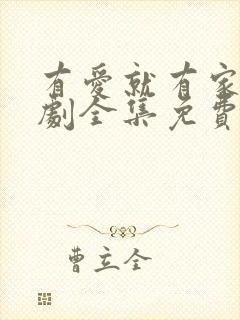 有愛就有家
劇全集免費
曹立全